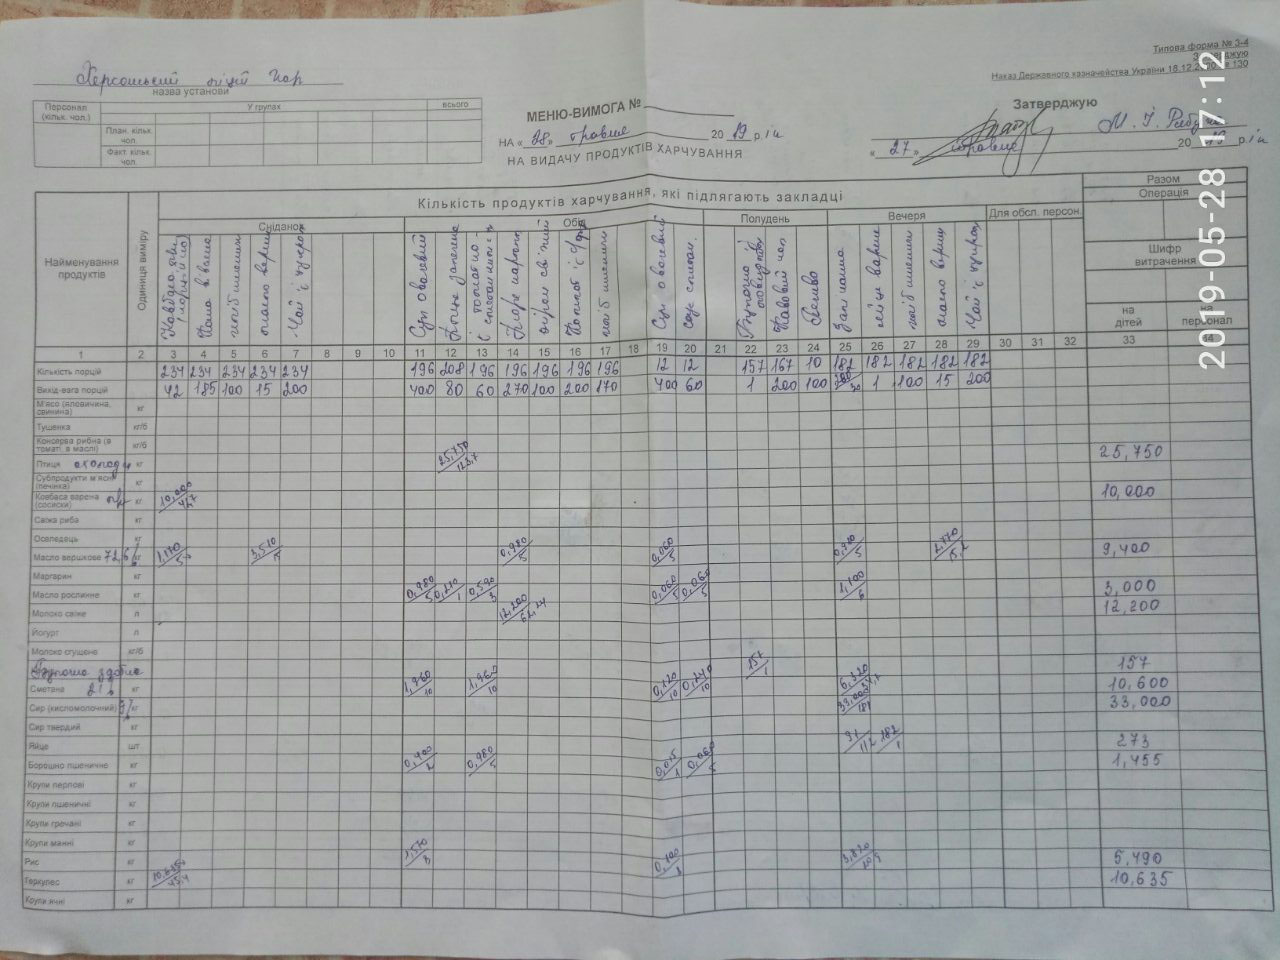 Типова форма № З-4
Затверджую
Наказ Державного казначейства України 18.12.2000 № 130
Херсонський ліцей
назва установи
Персонал (кільк. чол.) У групах всього
План. кільк. чол.
Факт. кільк. чол.
МЕНЮ-ВИМОГА №
НА « 28 » травня 20 19 р.
НА ВИДАЧУ ПРОДУКТІВ ХАРЧУВАННЯ
Затверджую
« 27 » травня 20 19 р.
2019-05-28 17:12
Найменування продуктів
Одиниця виміру
Кількість продуктів харчування, які підлягають закладці
Разом
Операція
Сніданок Обід Полудень Вечеря Для обсл. персон.
Шифр витрачення
на дітей персонал
Чай і цукор Суп овочевий Хліб пшеничн Суп овочевий Запіканка яйце варене Чай і цукор
1 2 3 4 5 6 7 8 9 10 11 12 13 14 15 16 17 18 19 20 21 22 23 24 25 26 27 28 29 30 31 32 33 34
Кількість порцій 234 234 234 234 234 196 208 196 196 196 196 196 12 12 157 167 10 182 182 182 182 182
Вихід-вага порцій 42 185 100 15 200 400 80 60 270 100 200 170 400 60 1 200 100 1 100 15 200
М'ясо (яловичина, свинина) кг
Тушенка кг/б
Консерва рибна (в томаті, в маслі) кг/б
Птиця кг 25,750 123,7 25,750
Субпродукти м'ясні (печінка) кг
Ковбаса варена (сосиски) кг 10,000 10,000
Свіжа риба кг
Оселедець кг
Масло вершкове 72,6% кг 1,170 5 3,510 15 0,980 5 0,060 5 0,910 5 9,400
Маргарин кг
Масло рослинне кг 0,980 5 0,210 1 0,590 3 0,060 5 0,060 5 1,100 6 3,000
Молоко свіже л 12,200 62,24 12,200
Йогурт л
Молоко сгущене кг/б
здобна 157 1 157
Сметана 21% кг 1,960 10 1,960 10 0,120 10 0,240 6,320 10,600
Сир (кисломолочний) 9% кг 33,000 181 33,000
Сир твердий кг
Яйце шт 91 182 1 273
Борошно пшеничне кг 0,400 2 0,980 5 0,015 1 0,060 5 1,455
Крупи перлові кг
Крупи пшеничні кг
Крупи гречані кг
Крупи манні кг
Рис кг 1,570 8 0,100 8 3,820 5,490
Геркулес кг 10,635 45,4 10,635
Крупи ячні кг